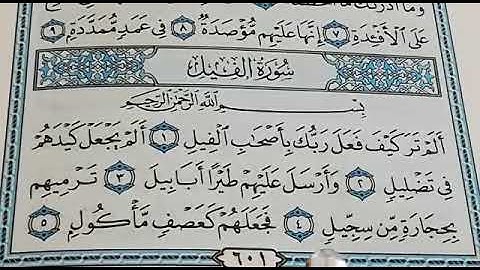 وَمَا أَدْرَىٰكَ مَا
عَلَى الْأَفْـِٔدَةِ ٧ إِنَّهَا عَلَيْهِم مُّؤْصَدَةٌ ٨ فِي عَمَدٍ مُّمَدَّدَةٍ ٩
سُورَةُ الْفِيلِ
بِسْمِ اللَّهِ الرَّحْمَٰنِ الرَّحِيمِ
أَلَمْ تَرَ كَيْفَ فَعَلَ رَبُّكَ بِأَصْحَابِ الْفِيلِ ١ أَلَمْ يَجْعَلْ كَيْدَهُمْ
فِي تَضْلِيلٍ ٢ وَأَرْسَلَ عَلَيْهِمْ طَيْرًا أَبَابِيلَ ٣ تَرْمِيهِم
بِحِجَارَةٍ مِّن سِجِّيلٍ ٤ فَجَعَلَهُمْ كَعَصْفٍ مَّأْكُولٍ ٥
٦٠١